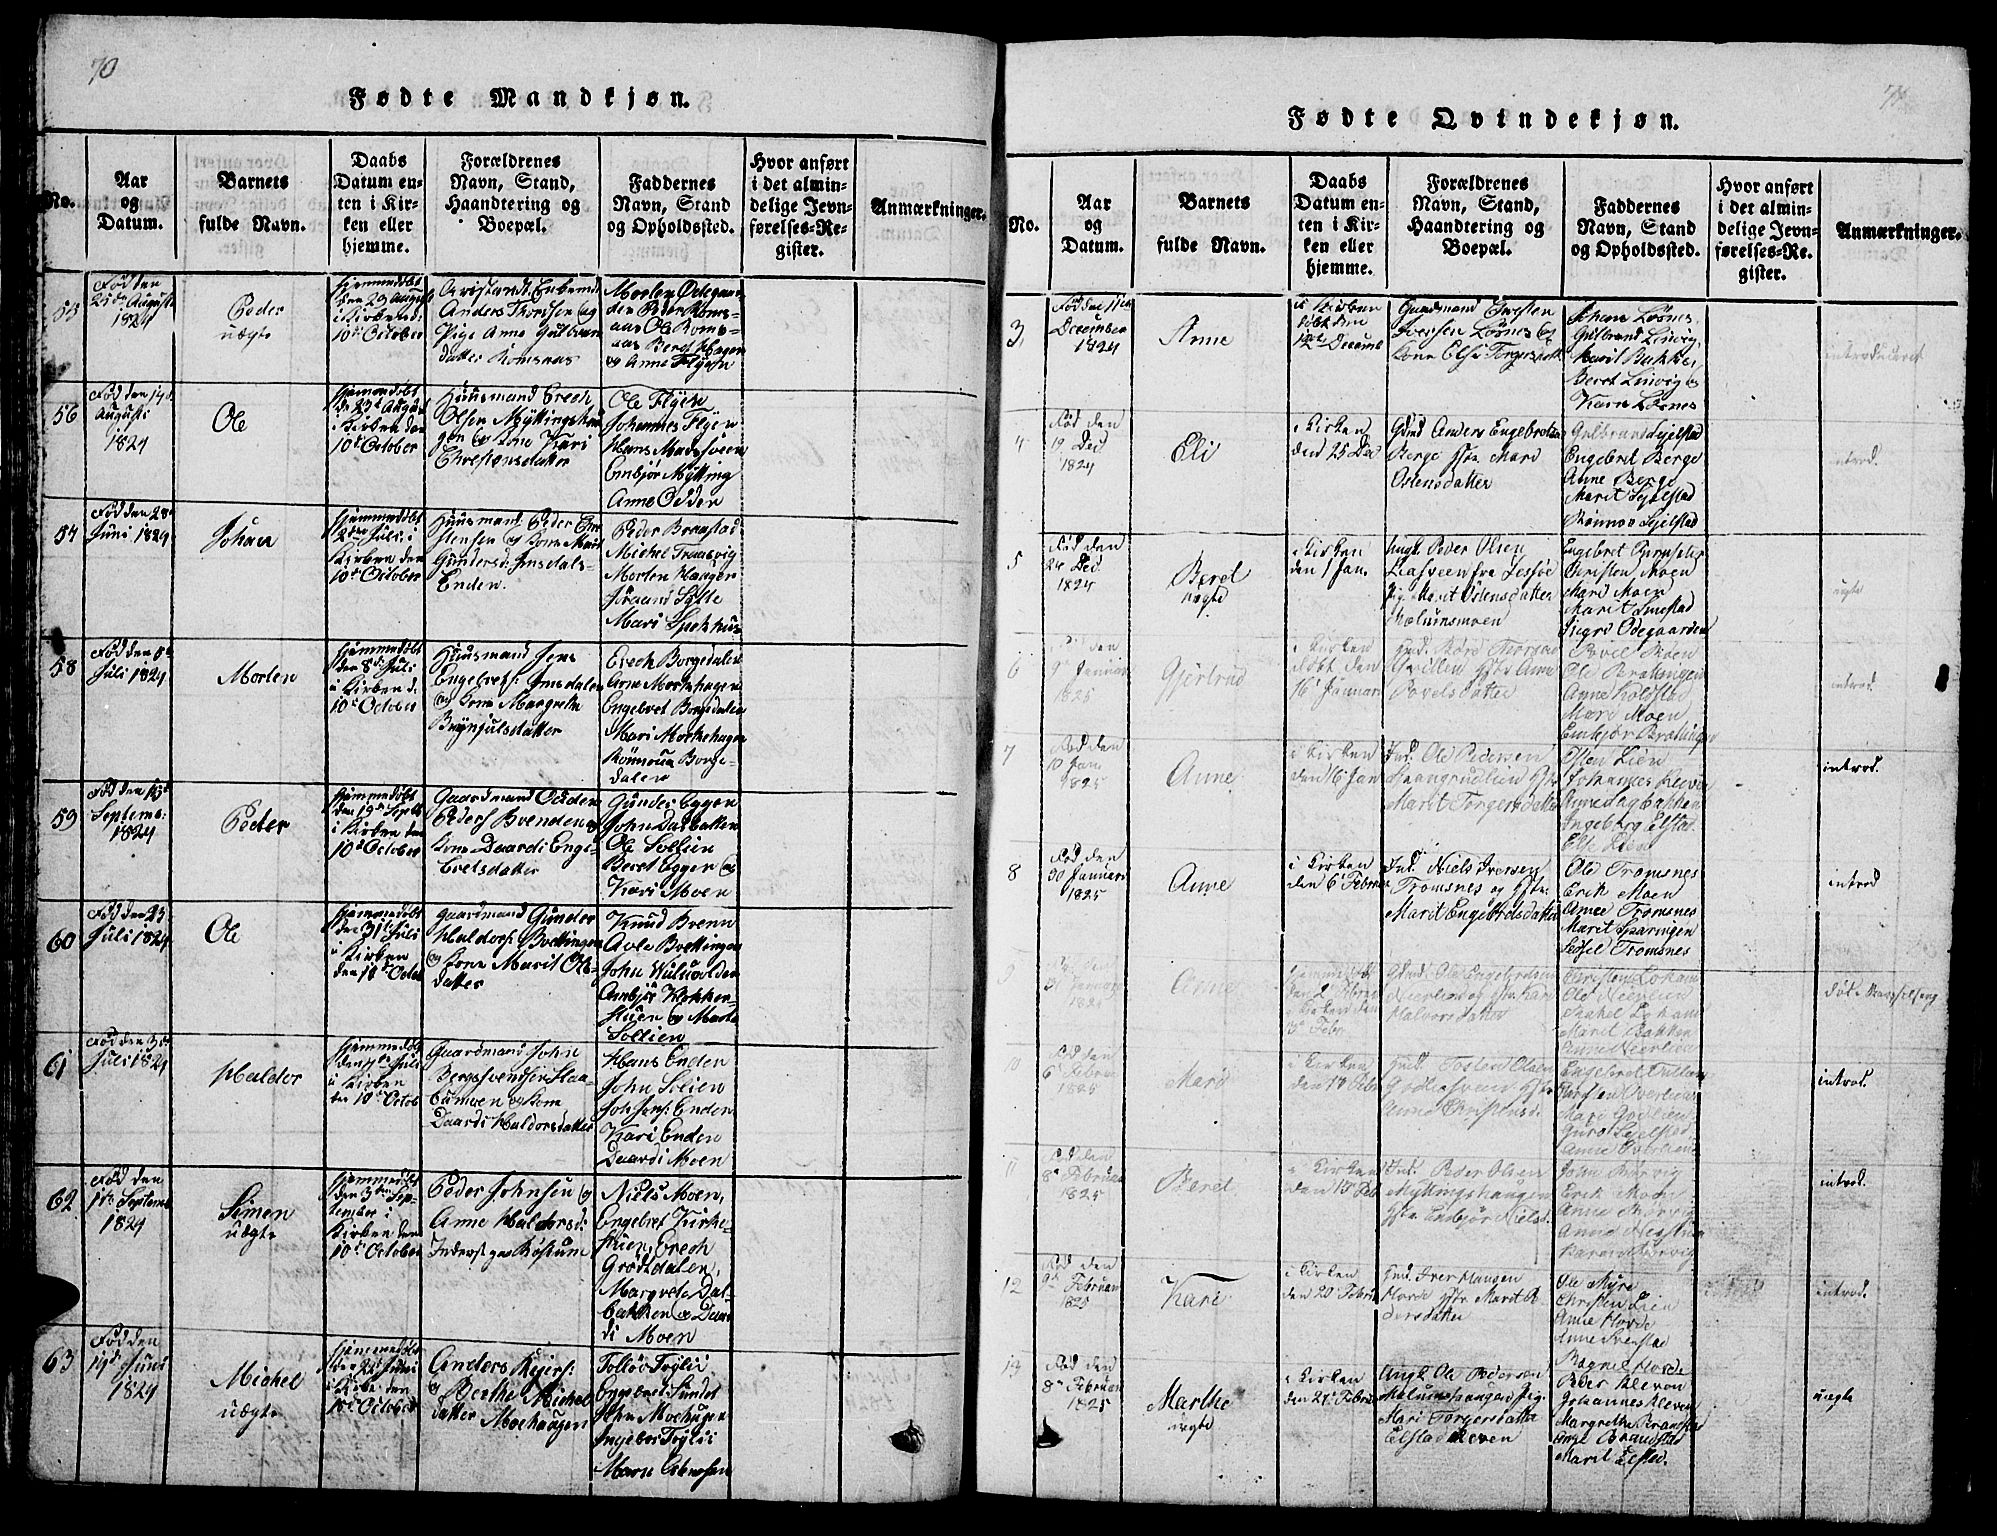 70
Fødte Mandkjøn.
No.
Aar
og
Datum.
Barnets
fulde Navn.
Daabs
Datum en-
ten i Kir-
ken eller
hjemme.
Forældrenes
Navn, Stand,
Haandtering og
Boepæl.
Faddernes
Navn, Stand
og Opholdssted.
Hvor anført
i det almin-
delige Jevn-
førelses-Re-
gister.
Anmærkninger.
55
Fød den
25de Augusti
1824
Peder
uægte
hjemmedøbt
den 29 August
i Kirken d
10de October
Anders Thorssen og
Pige Anne Gulbran
datter Romsaas
Morten Ødegaar
den Peder Roms-
aas Ole Roms-
aas Beret Hagen
og Anne Flyen
56
Fød den 19d
Augusti
1824
Ole
hjemmedøbt
d 23d August
i Kirken den
10de October
Huusmand Erech
Olsen Myttingshau
gen og Kone Kari
Christensdatter
Ole Flyen
Johannes Flyen
Hans Madssveen
Embjør Mytting
Anne Odden
57
Fød den 28d
Juni 1824
Johan
hjemmedøbt
2den Juli i
Kirken den
10de October
Huusmand Peder Chri
stensen og Kone Marit
Gundersd. Imsdals-
Enden.
Peder Brandstad
Michel Traasvig
Morten Haugen
Jøraand Sylte
Mari Spekhus
58
Fød den 8de
Juli 1824
Morten
hjemmedøbt
den 8de Juli
i Kirken d.
10de October
Huusmand Jens
Engebrets: Imsdalen
og Kone Margrethe
Brynjulsdatter
Erech Borgedalen
Arne Morkehagen
Engebret Borgedalen
Mari Morkehagen
Rønnoua Borge-
dalen
59
Fød den 13de
Septemb:
1824
Peder
hjemmedøbt
den 19de Septb
i Kirken den
10de October
Gaardmand Odden
Peders Brenden og
Kone Daardi Enge-
bretsdatter
Gunder Eggen
John Dalbakken
Ole Sollien
Beret Eggen og
Kari Moen
60
Fød den 23
Juli 1824
Ole
hjemmedøbt
den 31te Juli
i Kirken
den 10de Octob
Gaardmand Gunder
Haldors: Brettingen
og Kone Marit Ols-
datter
Knud Brenn
Arle Brettingen
John Hulvolden
Ambjør Kokker-
stuen og Marte
Sollien
61
Fød den 3de
Juli 1824
Haldor
hjemmedøb
den 7de Juli
i Kirken
den 10de Octob
Gaardmand John
Bergsvendsen Staa-
lumoen og Kone
Daardi Haldorsdatter
Hans Enden
John Soeien
Joh Jens: Enden
Kari Enden
Daardi Moen
62
Fød den
1te Septemb
1824
Simen
uægte
hjemmedøbt
den 3de Sep-
tember i
Kirken den
10de October
Peder Johnsen og
Anne Haldorsd:
Inderst. paa Kostum
Niels Moen,
Engebret Kirke-
stuen, Erech
Grødtdalen,
Margrete Dal-
bakken og Daar
di Moen
63
Fød den
19d Juni
1824
Michel
uægte
hjemmedøb
den 22d Juni
i Kirke den
10de October
Anders Reiers:
og Berthe Michel
datter Moehaugen
Tollov Foglii
Engebret Sundet
John Moehugen
Ingebor Foglii
Maru Estensen
71
Fødte Qvindekjøn.
No.
Aar
og
Datum.
Barnets
fulde Navn.
Daabs
Datum en-
ten i Kir-
ken eller
hjemme.
Forældrenes
Navn, Stand,
Haandtering og
Boepæl.
Faddernes
Navn, Stand
og Opholdssted.
Hvor anført
i det almin-
delige Jevn-
førelses-Re-
gister.
Anmærkninger.
3,
Fød den 11te
December
1824
Anne
i Kirken
døbt den
12te Decemb
Gaardmand Gresten
Iversen Losnes og
Kone Else Torgersdatt
Johans Losnes,
Gulbrand Linvig,
Marit Bakke,
Beret Linvig og
Kari Losnes
introduceret
4
Fød den
19 Dec
1824
Eli
i Kirken
den 25 Dec
Gmd Anders Engebretsen
Berge Hstr Mari
Ostensdatter
Gulbrand Sejelstad
Engebret Berge
Anne Berge
Marit Sejelstad
Rønnov Sejelstad
introd.
5
Fød den
24 Dec
1824
Beret
uægte
i Kirken
den 1 Jan.
Ungk. Peder Olsen
Liasveen fra Lessøe
Pig. Marit Ostensdatter
Mælumsmoen
Christen Moen
Mari Moen
Marit Smestad
Sigri Ødegaarden
uægte
6
den
9 Januar
1825
Gjertrud
i Kirken
døbt den
16 Januar
Povelsdatter
Povel Moen
Ole Brættingen
Anne Kolstad
Mari Moen
Embjør Brættingen
introd.
7
Fød den
10 Jan
1825
Anne
i Kirken
den 16 Jan
Ind. Ole Pedersen
Haangrudlien Hstr
Marit Torgersdatter
Esten Lien
Johannes Kleven
Anne Dagbakken
Ingeborg Elstad
Else Lien
introd.
8
Fød den
30 Januari
1825
Anne
i Kirken
den 6 Februar
Ind. Niels Iversen
Tromsnes og Hstr.
Marit Engebretsdatter
Ole Tromsnes
Erik Moen
Anne Tromsnes
Marit Sparingen
Sidsel Tromsnes
introd
9
31 Januari
1825
Anne
hjemmedøbt
den 2 Februar
i Kirken den
Gmd. Ole Engebretsen
Neerlien og Hstr Kari
Halvorsdatter
Ole Neerlien
Marit Bakken
Anne Neerlien
10
Fød den
6 Februar
1825
Mari
i Kirken
den 13 Febr
Gmd. Tosten Olsen
Godlasveen Hstr
Anne Christensd.
Karsten Overlien
Mari Godlien
Guro Sejelstad
Anne Overlien
introd.
11
Fød den
8 Februar
1825
Beret
i Kirken
den 13 Feb
Ind. Peder Olsen
Myttingshaugen
Hstr Embjør Nielsd.
John Korvig
Erik Moen
Anne Korvig
introd.
12
Fød den
9 Februar
1825
Kari
i Kirken
den 20 Febr
Gmd. Iver Hansen
Horde Hstr Marit A-
dersdatter
Ole Myre
Christen Lien
Anne Horde
Anne Svestad
Ragnil Horde
introd.
13
Fød den
8 Februar
1825
Marthe
uægte
i Kirken
den 21 Febru
Ungk. Ole Pedersen
Mælumshaugen Pig.
Mari Torgersdatter
Elstadkleven
Peder Kleven
Johannes Kleven
Margrethe Branstad
Inge Brandstad
Marit Elstad.
uægte